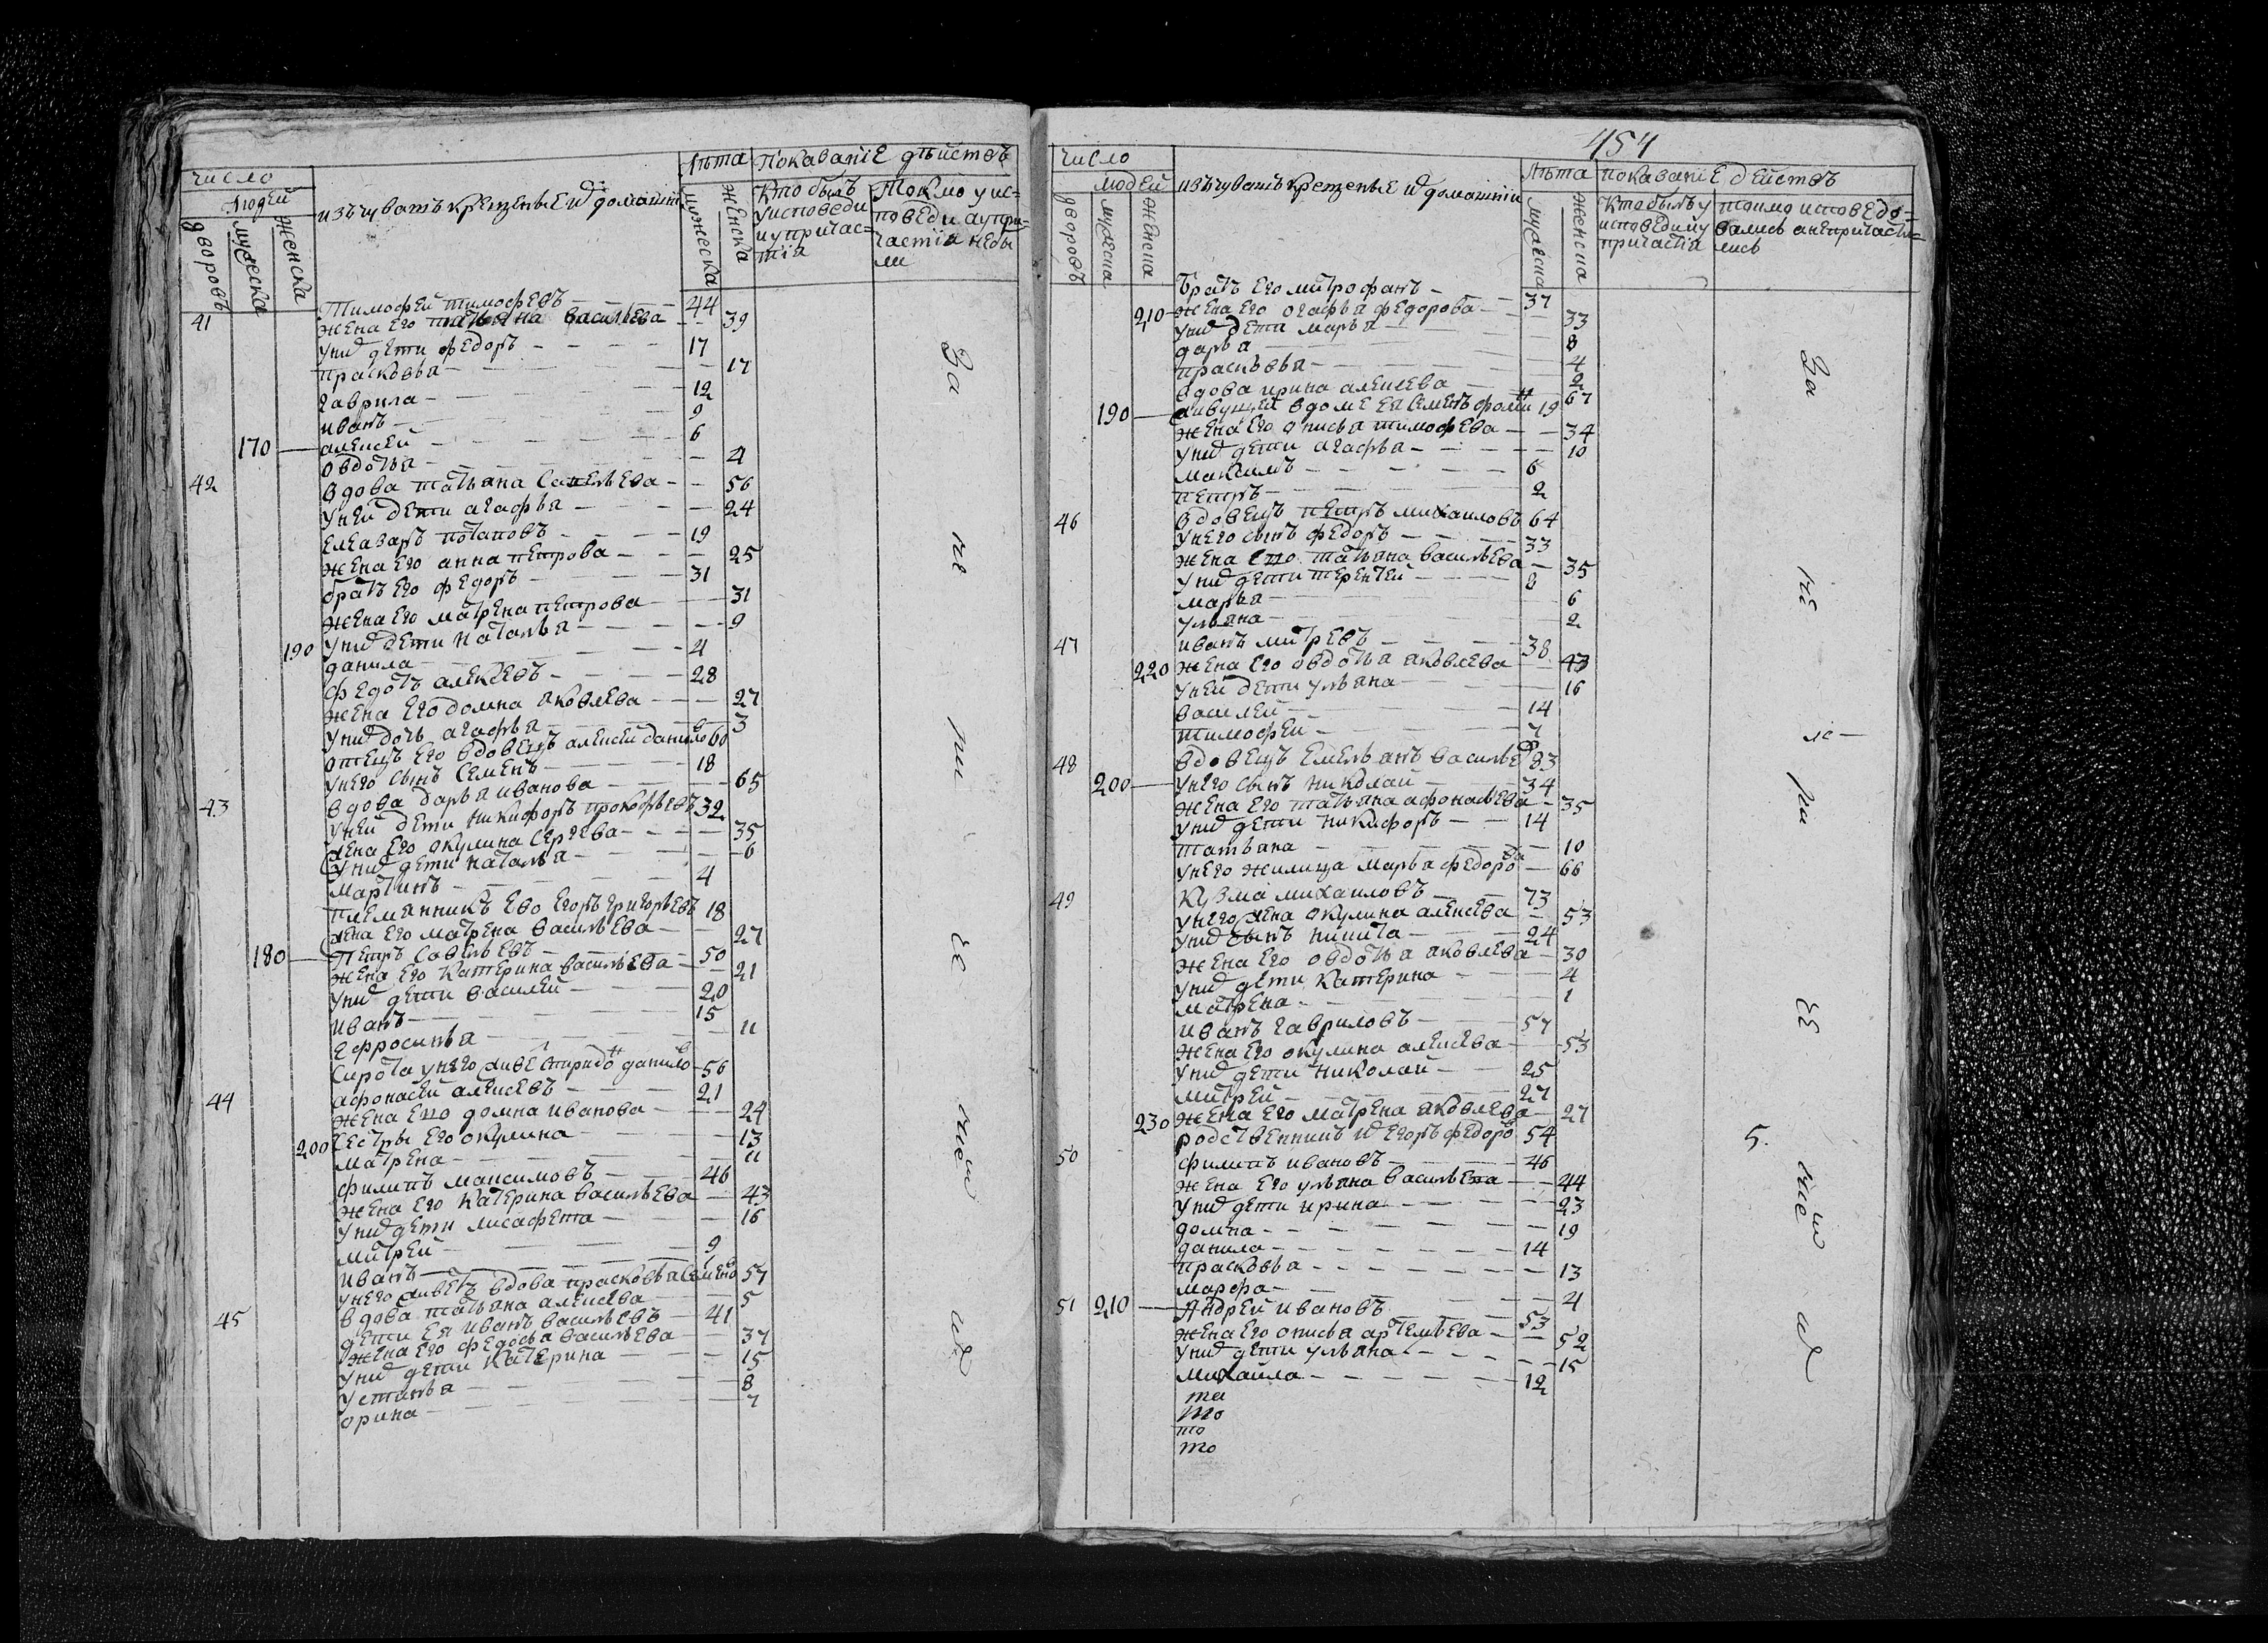 число
людей
дворовъ
мужеска
женска
изъ чувашъ крещеные и домашнi
Лѣта
мужеска
женска
Показанiе дѣйствъ
Кто былъ
у исповеди
и у причас=
тiя
Токмо у ис=
поведи а у при=
частiя небы
ли
Тимофей тимофеевъ 44
41 жена Его татьяна васильева 39
у них дети федоръ 17
прасковья 17
гаврила 12
иванъ 9
170 алексей 6
овдотья 4
42 вдова татьяна Савельева 56
у ней дети агафья 24
Елеазаръ потаповъ 19
жена Его анна петрова 25
братъ Его федоръ 31
жена Его матрена петрова 31
190 у них дети наталья 9
данила 4
федотъ алексеевъ 28
жена Его домна яковлева 27
у них дочь агафья 3
отецъ Его вдовецъ алексей данилов 60
у него сынъ Семенъ 18
вдова дарья иванова 65
43 у ней дети никифоръ прокофьевъ 32
жена Его окулина Сергеева 35
у них дети наталья 6
мартинъ 4
племянникъ Ево Егоръ григорьевъ 18
жена Его матрена васильева 27
180 Петръ Савельевъ 50
жена Его катерина васильева 21
у них дети василей 20
иванъ 15
Ефросинья 11
Сирота у него живе Спиридон данилов 56
афонасей алексеевъ 21
44 жена Ево домна иванова 24
200 Сестры Его окулина 13
матрена 11
филипъ максимовъ 46
жена Его катерина васильева 43
у них дети лисафета 16
митрей 9
иванъ 1
у него живетъ вдова прасковья Семенов 57
вдова татьяна алексеева 5
45 дети Ея иванъ васильевъ 41
жена Его федосья васильева 37
у них дети катерина 15
устинья 8
орина 7
За не ри ЕЕ ние м их
454
число
людей
дворовъ
мужеска
женска
изъ чувашъ крещеные и домашнiи
Лѣта
мужеска
женска
показанiе действъ
Кто былъ у
исповеди и у
причастiя
токмо исповедо=
вались а непричасти=
лись
братъ Его митрофанъ 37
210 жена Его огафья федорова 33
у них дети марья 8
дарья 4
прасковья 2
вдова ирина алексеева 67
190 живущей вдоме Ея Семенъ фомин 19
жена Его описья тимофеева 34
у них дети агафья 10
максимъ 6
петръ 2
46 вдовецъ петръ михаиловъ 64
у него сынъ федоръ 33
жена Ево татьяна васильева 35
у них дети терентей 8
марья 6
ульяна 2
47 иванъ митреевъ 38
220 жена Его овдотья яковлева 43
у ней дети ульяна 16
василей 14
тимофей 7
48 вдовецъ Емельянъ васильев 83
200 у него сынъ николай 34
жена Его татьяна афонасьева 35
у них дети никифоръ 14
татьяна 10
у него жилица марья федорова 66
49 Кузма михаиловъ 73
у него жена окулина алексеева 53
у них сынъ никита 24
жена Его овдотья яковлева 30
у них дети катерина 4
матрена 1
иванъ гавриловъ 57
жена Его окулина алексеева 53
у них дети николай 25
митрей 27
230 жена Его матрена яковлева 27
родственникъ их Егоръ федоров 54
50 филипъ ивановъ 46
жена Его ульяна васильева 44
у них дети ирина 23
домна 19
данила 14
прасковья 13
марфа 4
51 210 Андрей ивановъ 53
жена Его описья артемьева 52
у них дети ульяна 15
михаила 12
та
то
то
то
За не ри ЕЕ ние м их
5.